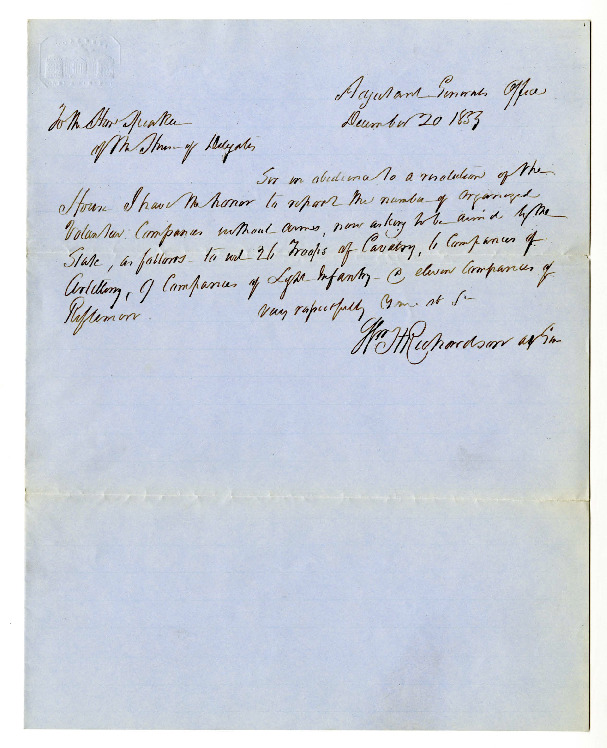 Adjutant Generals Office
December 20 1853
To the Hon Speaker
of the House of Delegates
Sir in obedience to a resolution of the
House I have the honor to report the number of organized
Volunteer Companies without arms, now asking to be armed by the
State, as follows to wit 26 Troops of Cavalry, 6 Companies of
Artillery, 9 Companies of Light Infantry & eleven Companies of
Riflemen. Very respectfully
Wm H Richardson